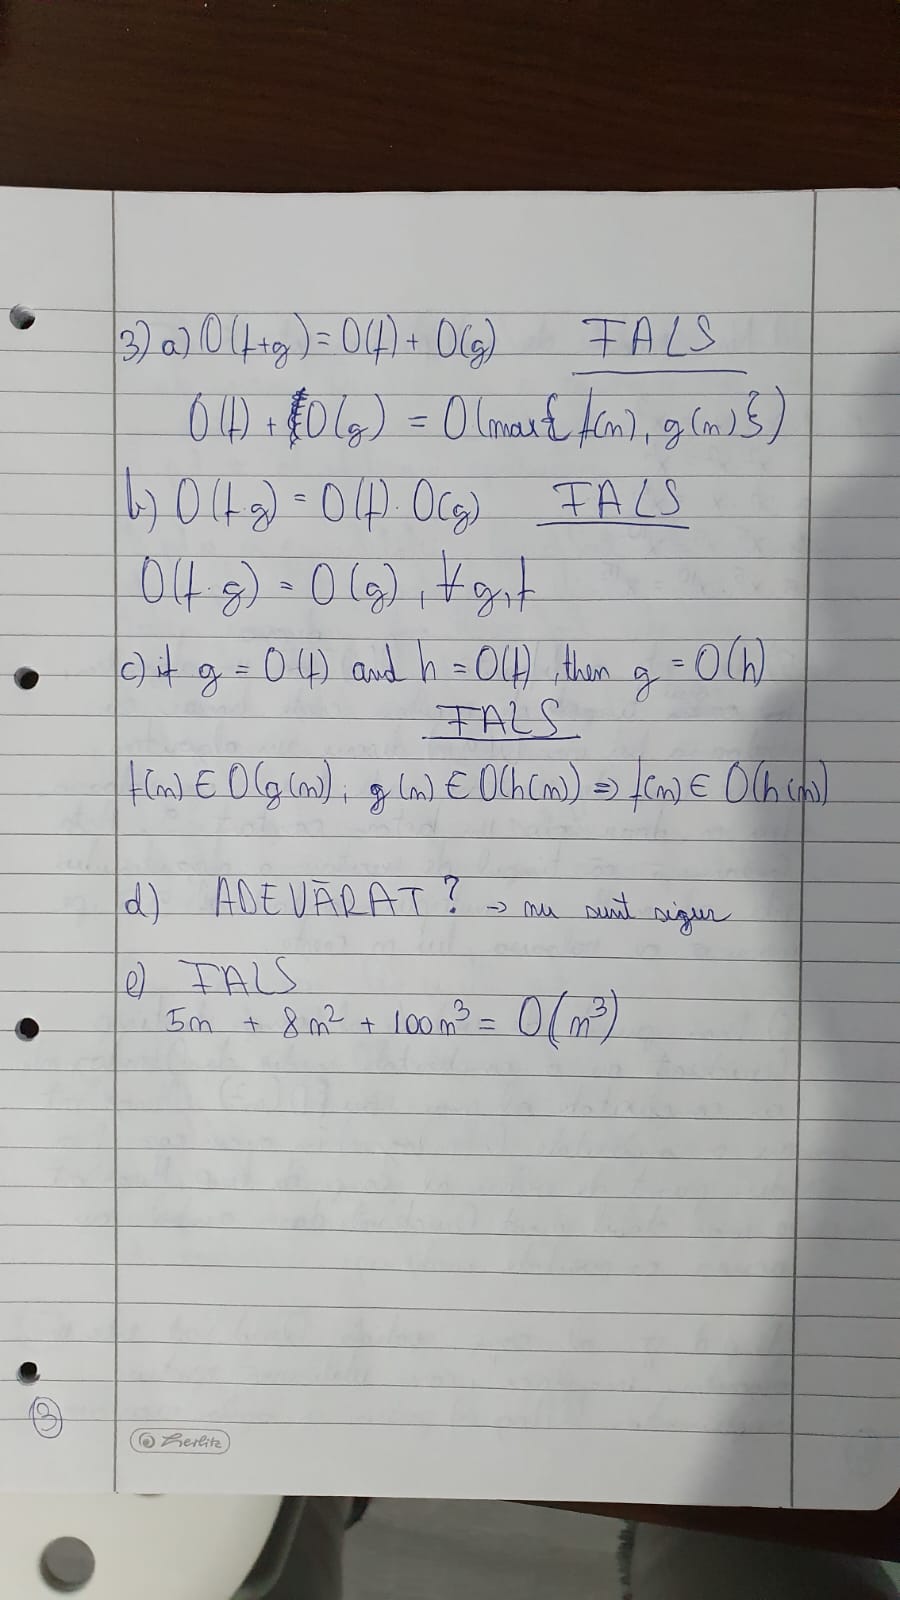 3) a) O(f+g) = O(f) + O(g) FALS
O(f) + O(g) = O(max{f(n), g(n)})
b) O(f·g) = O(f)·O(g) FALS
O(f·g) = O(g), ∀ g, f
c) if g = O(f) and h = O(f), then g = O(h)
FALS
f(n) ∈ O(g(n)), g(n) ∈ O(h(n)) ⇒ f(n) ∈ O(h(n))
d) ADEVĂRAT? → nu sunt sigur
e) FALS
5n + 8n² + 100n³ = O(n³)
3
Herlitz